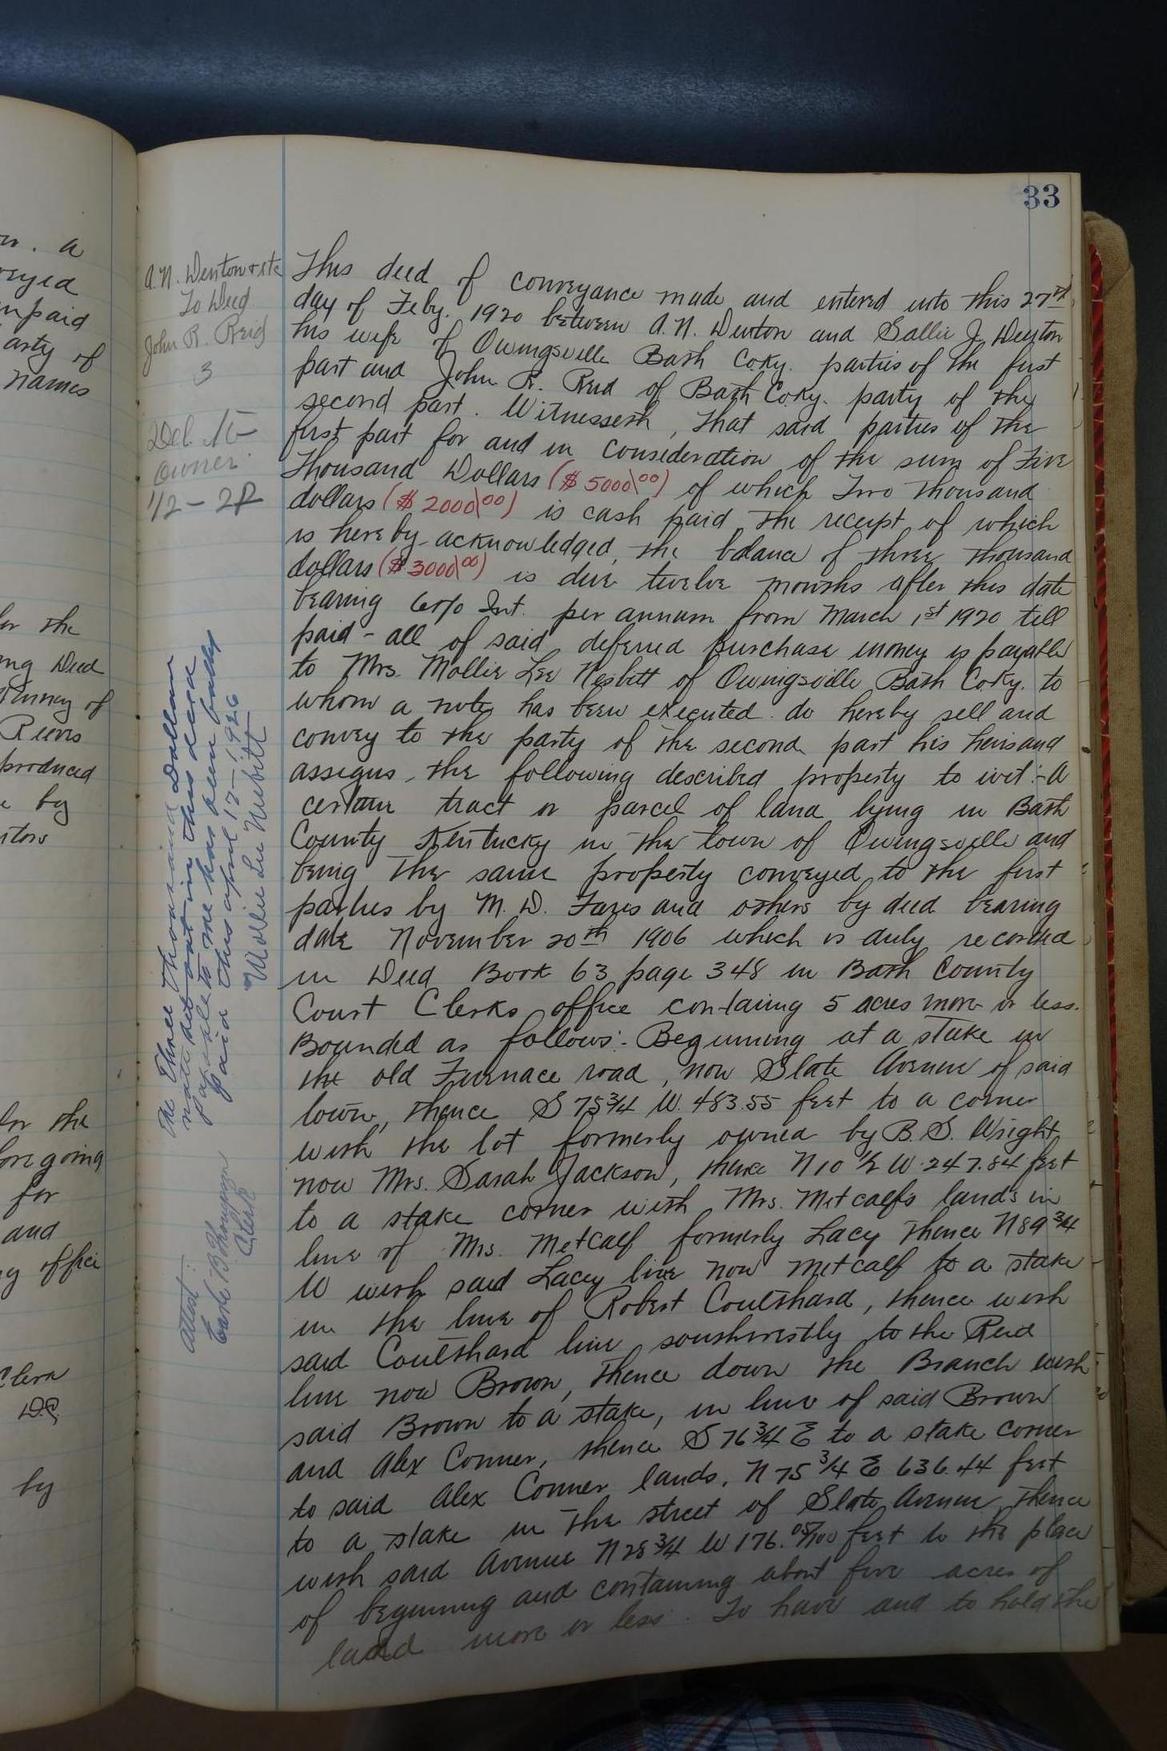 33
A.N. Denton & etc
To Deed
John R. Reid
3
Del. to
owner
1/2-28
This deed of conveyance made and entered into this 27th
day of Feby. 1920 between A.N. Denton and Sallie J. Denton
his wife of Owingsville Bath Co Ky. parties of the first
part and John R. Reid of Bath Co. Ky. party of the
second part. Witnesseth, That said parties of the
first part for and in consideration of the sum of Five
Thousand Dollars ($5000.00) of which Two Thousand
dollars ($2000.00) is cash paid the receipt of which
is hereby acknowledged, the balance of three thousand
dollars ($3000.00) is due twelve months after this date
bearing 6% Int. per annum from March 1st 1920 till
paid - all of said deferred purchase money is payable
to Mrs. Mollie Lee Nesbitt of Owingsville Bath Co Ky. to
whom a note has been executed. do hereby sell and
convey to the party of the second part his heirs and
assigns, the following described property to wit:- A
certain tract or parcel of land lying in Bath
County Kentucky in the town of Owingsville and
being the same property conveyed to the first
parties by M. D. Faris and others by deed bearing
date November 20th 1906 which is duly recorded
in Deed Book 63 page 348 in Bath County
Court Clerks office containg 5 acres more or less.
Bounded as follows:- Beginning at a stake in
the old Furnace road, now Slate Avenue of said
town, thence S 75 3/4 W. 483.55 feet to a corner
with the lot formerly owned by B. S. Wright
now Mrs. Sarah Jackson, thence N 10 1/2 W. 247.84 feet
to a stake corner with Mrs. Metcalfs lands in
line of Mrs. Metcalf formerly Lacy thence N 89 3/4
W with said Lacey line now Metcalf to a stake
in the line of Robert Coulthard, thence with
said Coulthard line southwestly to the Reid
line now Brown, thence down the Branch with
said Brown to a stake, in line of said Brown
and Alex Conner, thence S 76 3/4 E to a stake corner
to said Alex Conner lands, N 75 3/4 E 636.44 feet
to a stake in the street of Slate Avenue, thence
with said Avenue N 28 3/4 W 176.05/100 feet to the place
of beginning and containing about five acres of
land more or less. To have and to hold the
The Three Thousand Dollar
note set out in this deed
payable to me has been fully
paid this April 12-1926
Mollie Lee Nesbitt
Attest:
Clerk